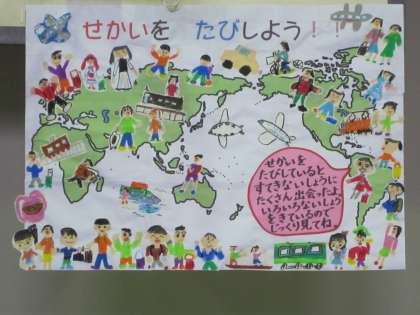 せかいを たびしよう！！
せかいを
たびしていると
すてきないしょうに
たくさん出会ったよ
いろいろないしょう
をきているので
じっくり見てね。